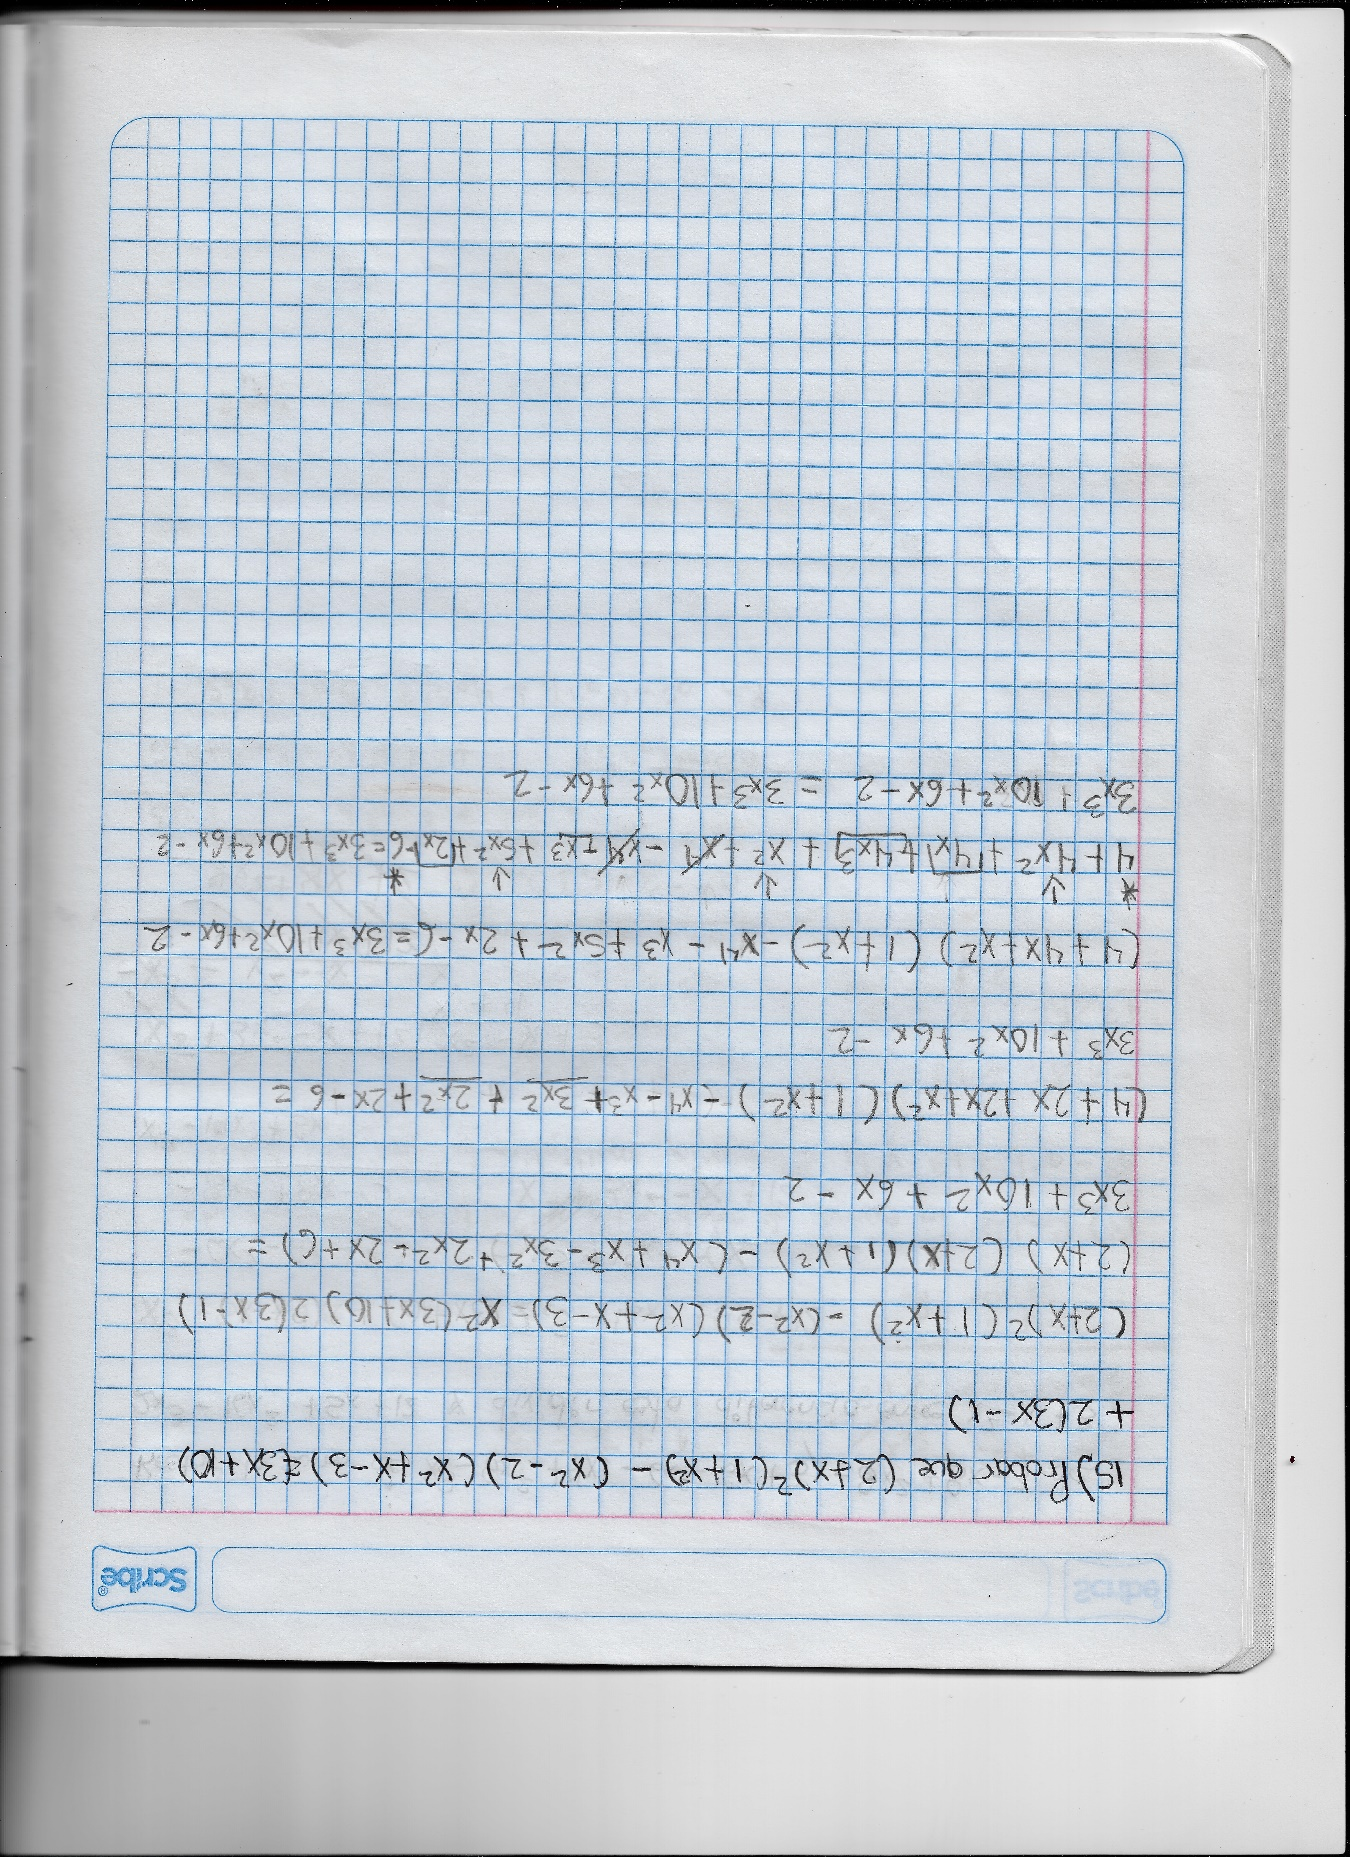 Scribe®
15) Probar que (2+x)²(1+x²) - (x²-2)(x²+x-3) = (3x+10)
+ 2(3x-1)
(2+x)²(1+x²) - (x²-2)(x²+x-3) = x²(3x+10) 2(3x-1)
(2+x) (2+x)(1+x²) - (x⁴+x³-3x²+2x²-2x+6) =
3x³ + 10x² + 6x - 2
(4+2x+2x+x²)(1+x²) - x⁴ - x³ + 3x² + 2x² + 2x - 6 =
3x³ + 10x² + 6x - 2
(4+4x+x²) (1+x²) - x⁴ - x³ + 5x² + 2x - 6 = 3x³ + 10x² + 6x - 2
4 + 4x² + 4x + 4x³ + x² + x⁴ - x⁴ - x³ + 5x² + 2x - 6 = 3x³ + 10x² + 6x - 2
3x³ + 10x² + 6x - 2 = 3x³ + 10x² + 6x - 2